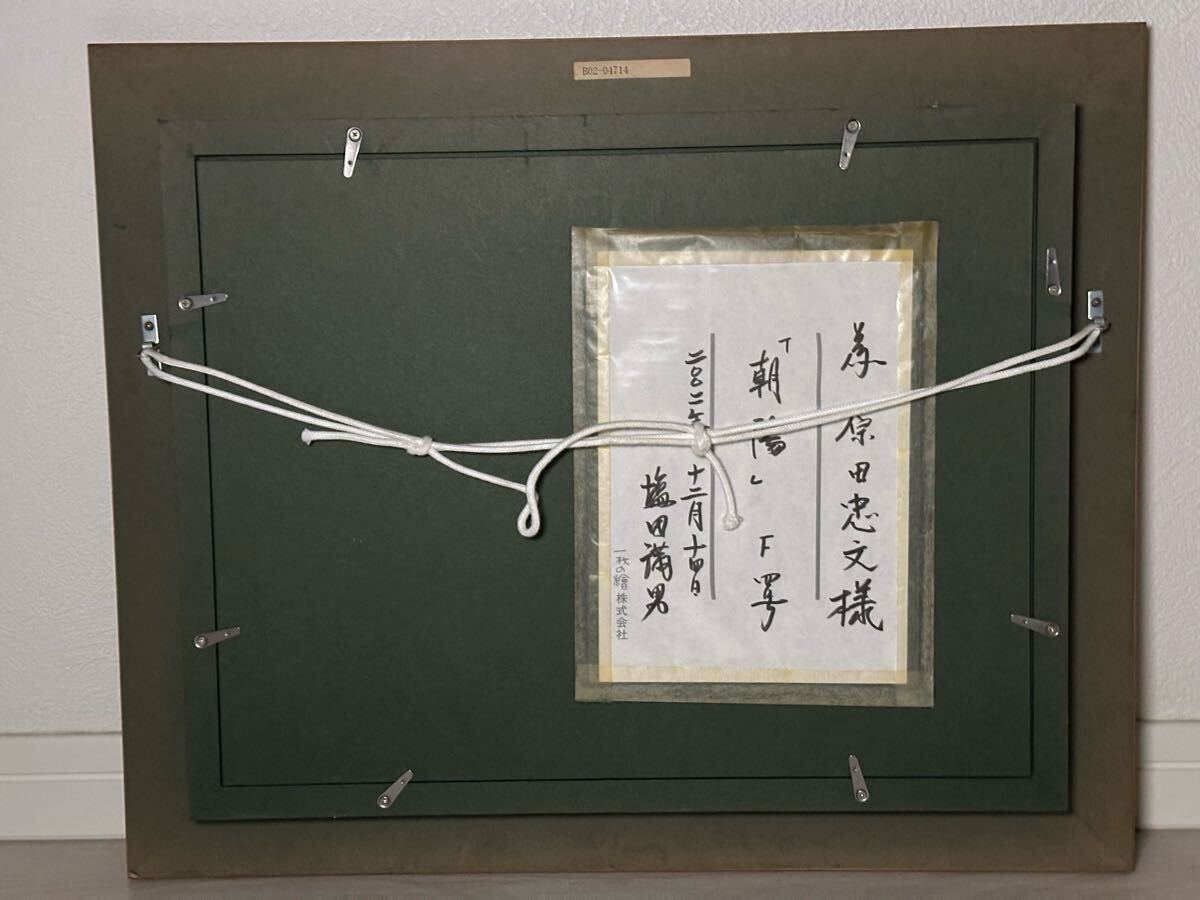 B02-04714
為 保田忠文様
「朝陽」 F四号
二〇〇二年 十二月十四日
塩田満男
一枚の繪株式会社